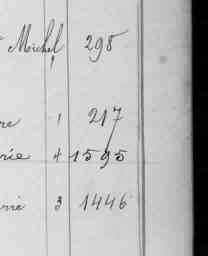 Michel 1 298
re 1 217
rie 4 1595
rié 3 1446